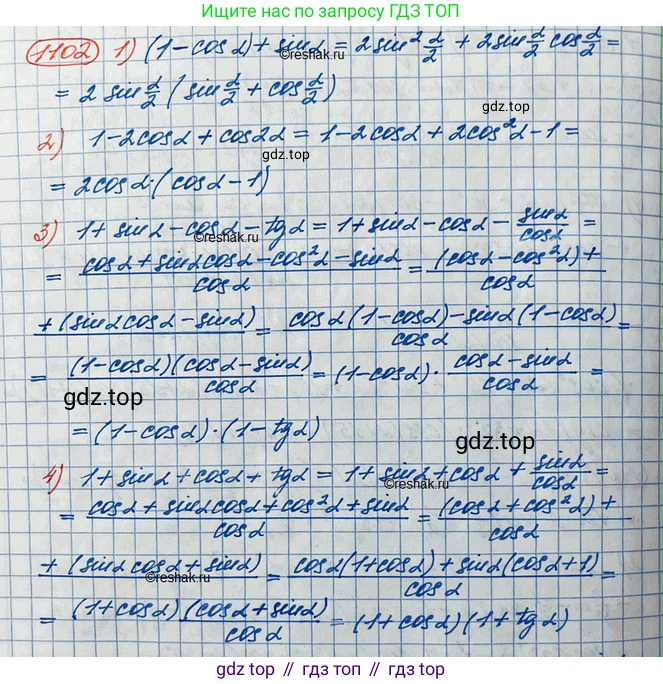 Ищите нас по запросу ГДЗ ТОП
1102 1) (1-cosα)+sinα = 2sin² α/2 + 2sin α/2 cos α/2 =
©reshak.ru
= 2 sin α/2 (sin α/2 + cos α/2)
gdz.top
2) 1-2cosα+cos2α = 1-2cosα+2cos²α-1 =
gdz.top
= 2cosα·(cosα-1)
3) 1+sinα-cosα-tgα = 1+sinα-cosα- sinα/cosα =
©reshak.ru
= (cosα+sinαcosα-cos²α-sinα)/cosα = ((cosα-cos²α)+)/cosα
+(sinαcosα-sinα) = (cosα(1-cosα)-sinα(1-cosα))/cosα =
= (1-cosα)(cosα-sinα)/cosα = (1-cosα)·(cosα-sinα)/cosα =
gdz.top
= (1-cosα)·(1-tgα)
gdz.top
4) 1+sinα+cosα+tgα = 1+sinα+cosα+ sinα/cosα =
©reshak.ru
= (cosα+sinαcosα+cos²α+sinα)/cosα = ((cosα+cos²α)+)/cosα
+(sinαcosα+sinα) = (cosα(1+cosα)+sinα(cosα+1))/cosα =
©reshak.ru
= (1+cosα)(cosα+sinα)/cosα = (1+cosα)(1+tgα)
gdz.top // гдз.топ // гдз топ